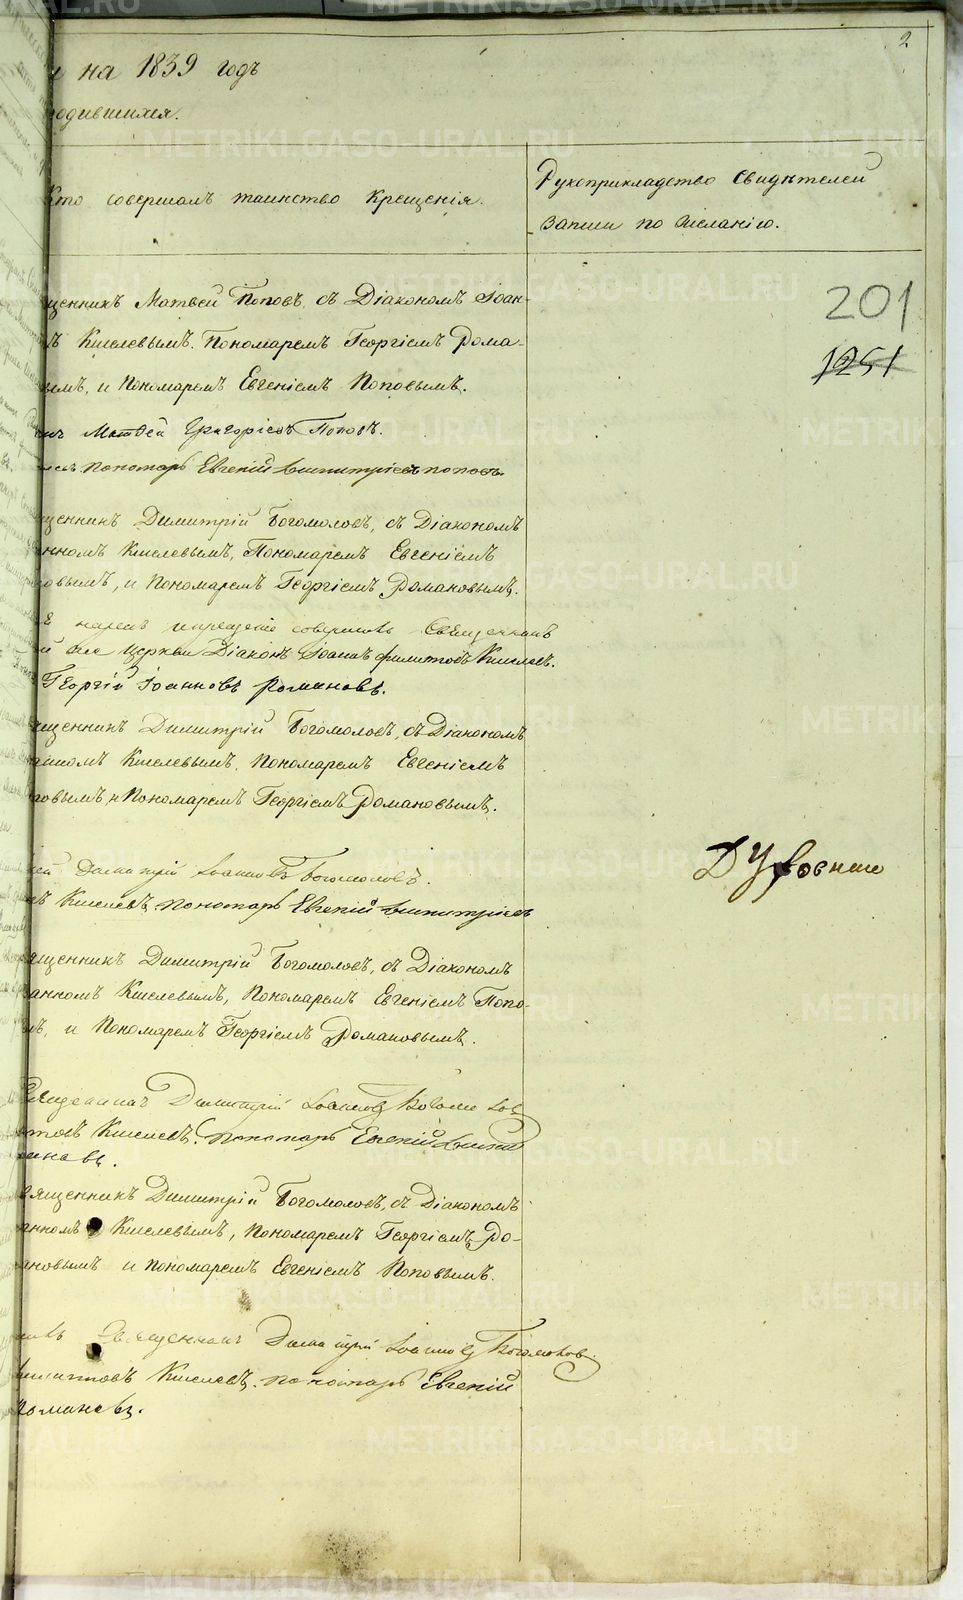 2
на 1839 годъ
родившихся.
Кто совершалъ таинство крещенія.
Рукоприкладство свидѣтелей
записи по желанію.
201
1251
щенникъ Матвей Поповъ, съ Діакономъ Іоан-
Киселевымъ. Пономаремъ Георгіемъ Рома-
вымъ, и Пономаремъ Евгеніемъ Поповымъ.
Матвей Григорьевъ Поповъ.
пономарь Евгений Димитріевъ поповъ.
щенникъ Димитрій Богомоловъ, съ Діакономъ
анномъ Киселевымъ, Пономаремъ Евгеніемъ
повымъ, и Пономаремъ Георгіемъ Романовымъ.
крещеніе совершалъ Священникъ
церкви Діаконъ Іоаннъ Филитовъ Киселевъ.
Георгій Іоанновъ Романовъ.
щенникъ Димитрій Богомоловъ, съ Діакономъ
анномъ Киселевымъ, Пономаремъ Евгеніемъ
повымъ и Пономаремъ Георгіемъ Романовымъ.
Димитрій Іоанновъ Богомоловъ.
Киселевъ, пономарь Евгений Димитріевъ
Духовныя
ященникъ Димитрій Богомоловъ, съ Діакономъ
анномъ Киселевымъ, Пономаремъ Евгеніемъ Попо-
и Пономаремъ Георгіемъ Романовымъ.
Священникъ Димитрій Іоанновъ Богомолов
Киселевъ. пономарь Евгений Димит
мановъ.
вященникъ Димитрій Богомоловъ, съ Діакономъ
анномъ Киселевымъ, Пономаремъ Георгіемъ Ро-
мановымъ и пономаремъ Евгеніемъ Поповымъ.
Священникъ Димитрій Іоанновъ Богомолов.
Киселевъ. пономарь Евгений
Романовъ.
METRIKI.GASO-URAL.RU